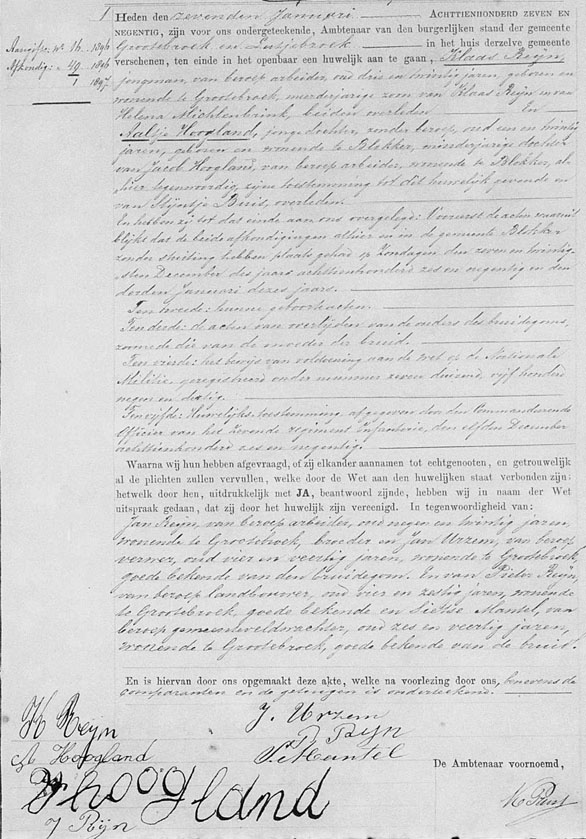 1
Aangifte n° 16. 1896
Afkondig: n 29 1896
1 1897.
Heden den zevenden Januari ACHTTIENHONDERD ZEVEN EN
NEGENTIG, zijn voor ons ondergeteekende, Ambtenaar van den burgerlijken stand der gemeente
Grootebroek en Lutjebroek in het huis derzelve gemeente
verschenen, ten einde in het openbaar een huwelijk aan te gaan, Klaas Reijn,
jongman, van beroep arbeider, oud drie en twintig jaren, geboren en
wonende te Grootebroek, meerderjarige zoon van Klaas Reijn en van
Helena Michtenbrink, beiden overleden En
Aaltje Hoogland, jonge dochter, zonder beroep, oud een en twintig
jaren, geboren en wonende te Blokker, minderjarige dochter
van Jacob Hoogland, van beroep arbeider, wonende te Blokker, als
hier tegenwoordig, zijne toestemming tot dit huwelijk gevende en
van Stijntje Buis, overleden.
En hebben zij tot dat einde aan ons overgelegd: Vooreerst de acten waaruit
blijkt dat de beide afkondigingen alhier en in de gemeente Blokker
zonder stuiting hebben plaats gehad op Zondagen den zeven en twintig-
sten December des jaars achttienhonderd zes en negentig en den
derden Januari dezes jaars.
Ten tweede: hunne geboorteacten.
Ten derde: de acten van overlijden van de ouders des bruidegoms,
zoomede die van de moeder der bruid.
Ten vierde: het bewijs van voldoening aan de wet op de Nationale
Militie, geregistreerd onder nummer zeven duizend, vijf honderd
negen en zestig.
Ten vijfde: Huwelijks toestemming, afgegeven door den Commandeerende
Officier van het zevende regiment infanterie, den elfden December
achttienhonderd zes en negentig.
Waarna wij hun hebben afgevraagd, of zij elkander aannamen tot echtgenooten, en getrouwelijk
al de plichten zullen vervullen, welke door de Wet aan den huwelijken staat verbonden zijn:
hetwelk door hen, uitdrukkelijk met JA, beantwoord zijnde, hebben wij in naam der Wet
uitspraak gedaan, dat zij door het huwelijk zijn vereenigd. In tegenwoordigheid van:
Jan Reijn, van beroep arbeider, oud negen en twintig jaren,
wonende te Grootebroek, broeder en Jan Urzem, van beroep
verwer, oud vier en veertig jaren, wonende te Grootebroek,
goede bekende van den bruidegom. En van Pieter Reijn,
van beroep landbouwer, oud vier en zestig jaren, wonende
te Grootebroek, goede bekende en Sietse Mantel, van
beroep gemeenteveldwachter, oud zes en veertig jaren,
wonende te Grootebroek, goede bekende van de bruid.
En is hiervan door ons opgemaakt deze akte, welke na voorlezing door ons, benevens de
comparanten en de getuigen is onderteekend.
K Reyn
J. Urzem
P Rijn
A Hoogland
S. Mantel
De Ambtenaar voornoemd,
J hoogland
J Rijn